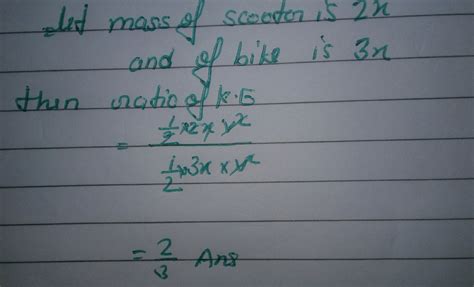 Let mass of scooter is 2x
and of bike is 3x
then ratio of K.E
= ½ × 2x × v² / ½ × 3x × v²
= 2/3 Ans